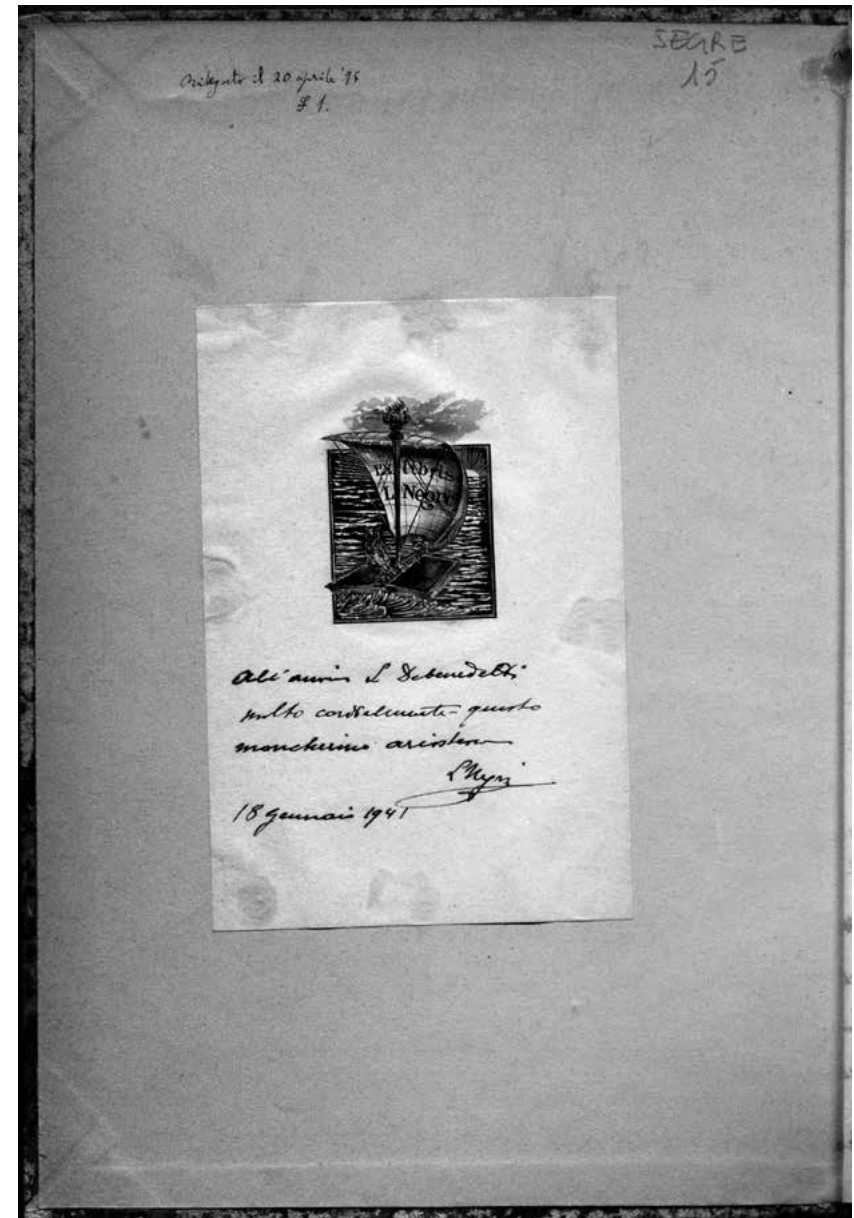 Rilegato il 20 aprile '95
₤ 1.
SEGRE
15
Ex libris
L. Negri
All'amico S Debenedetti
molto cordialmente questo
moncherino ariosteo
LNegri
18 gennaio 1941